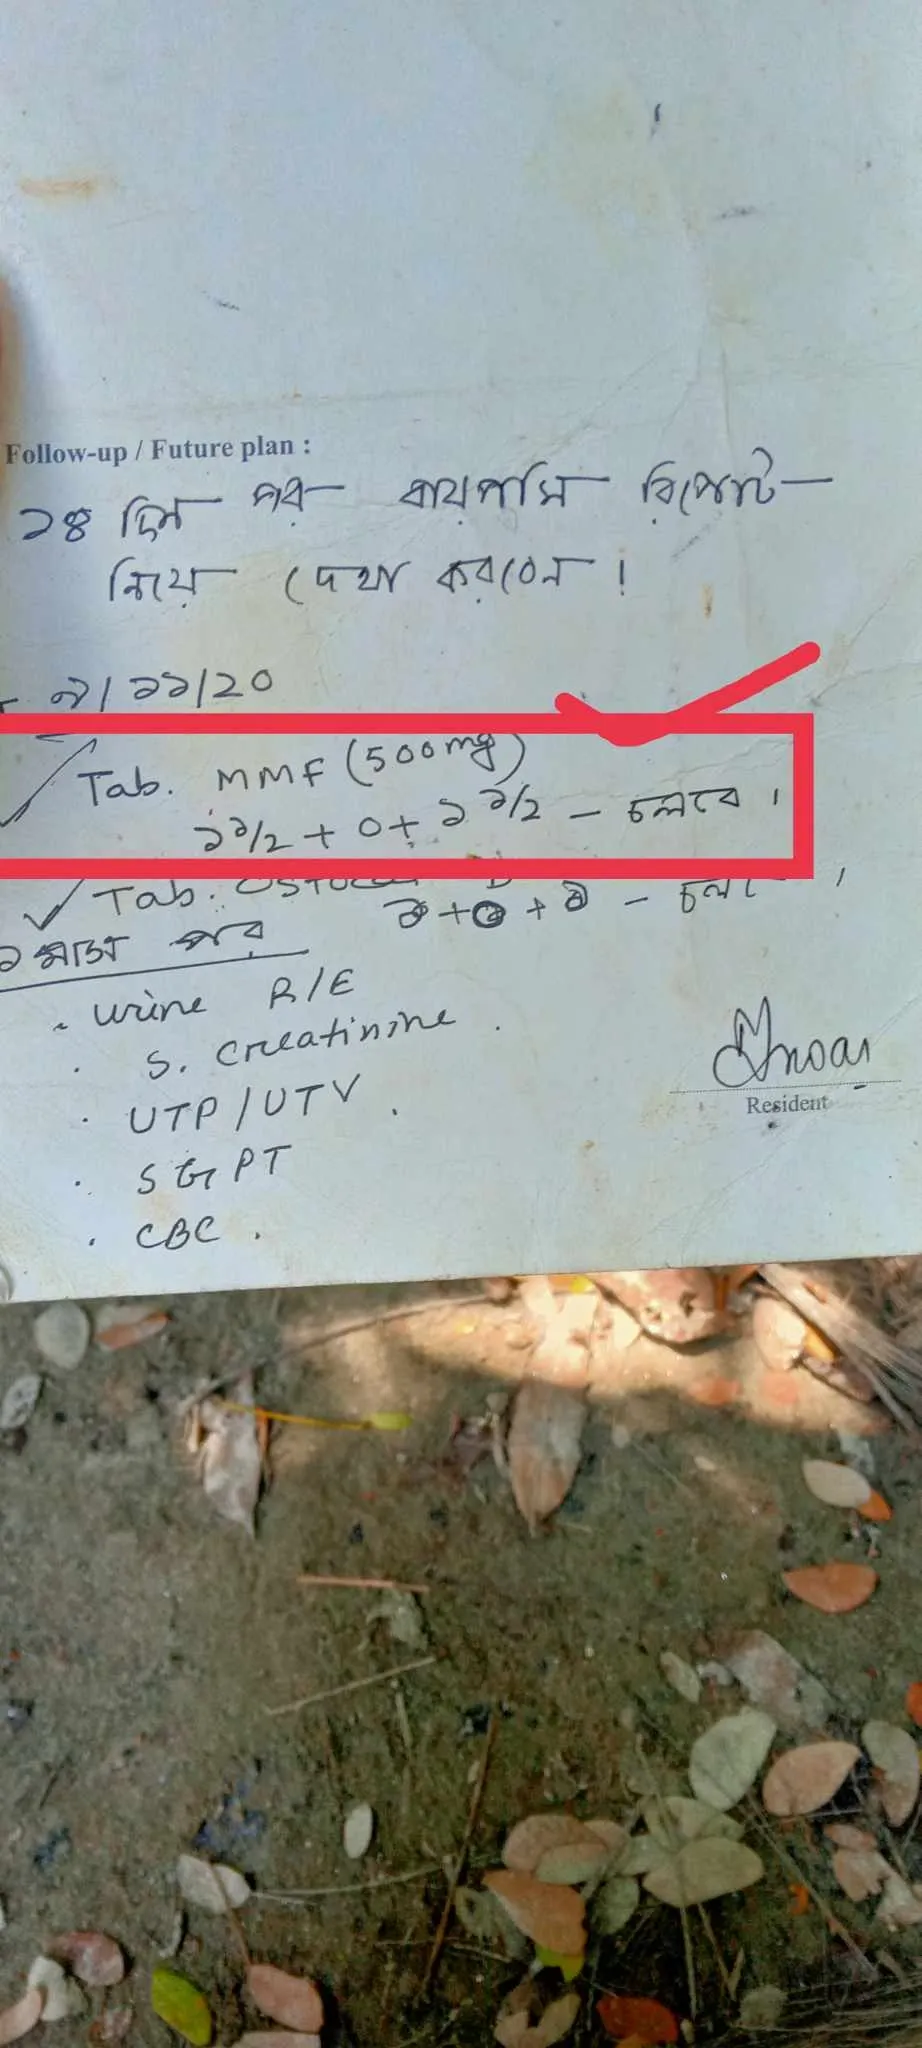 Follow-up / Future plan :
১৪ দিন পর বায়পসি রিপোর্ট
নিয়ে দেখা করবেন।
৯/১১/20
Tab. MMF (500mg)
১ ১/2 + 0 + ১ ১/2 - চলবে।
Tab.
১+0+১ -
১ মাস পর
. Urine R/E
. S. Creatinine .
. UTP/UTV .
. SGPT
. CBC .
Resident